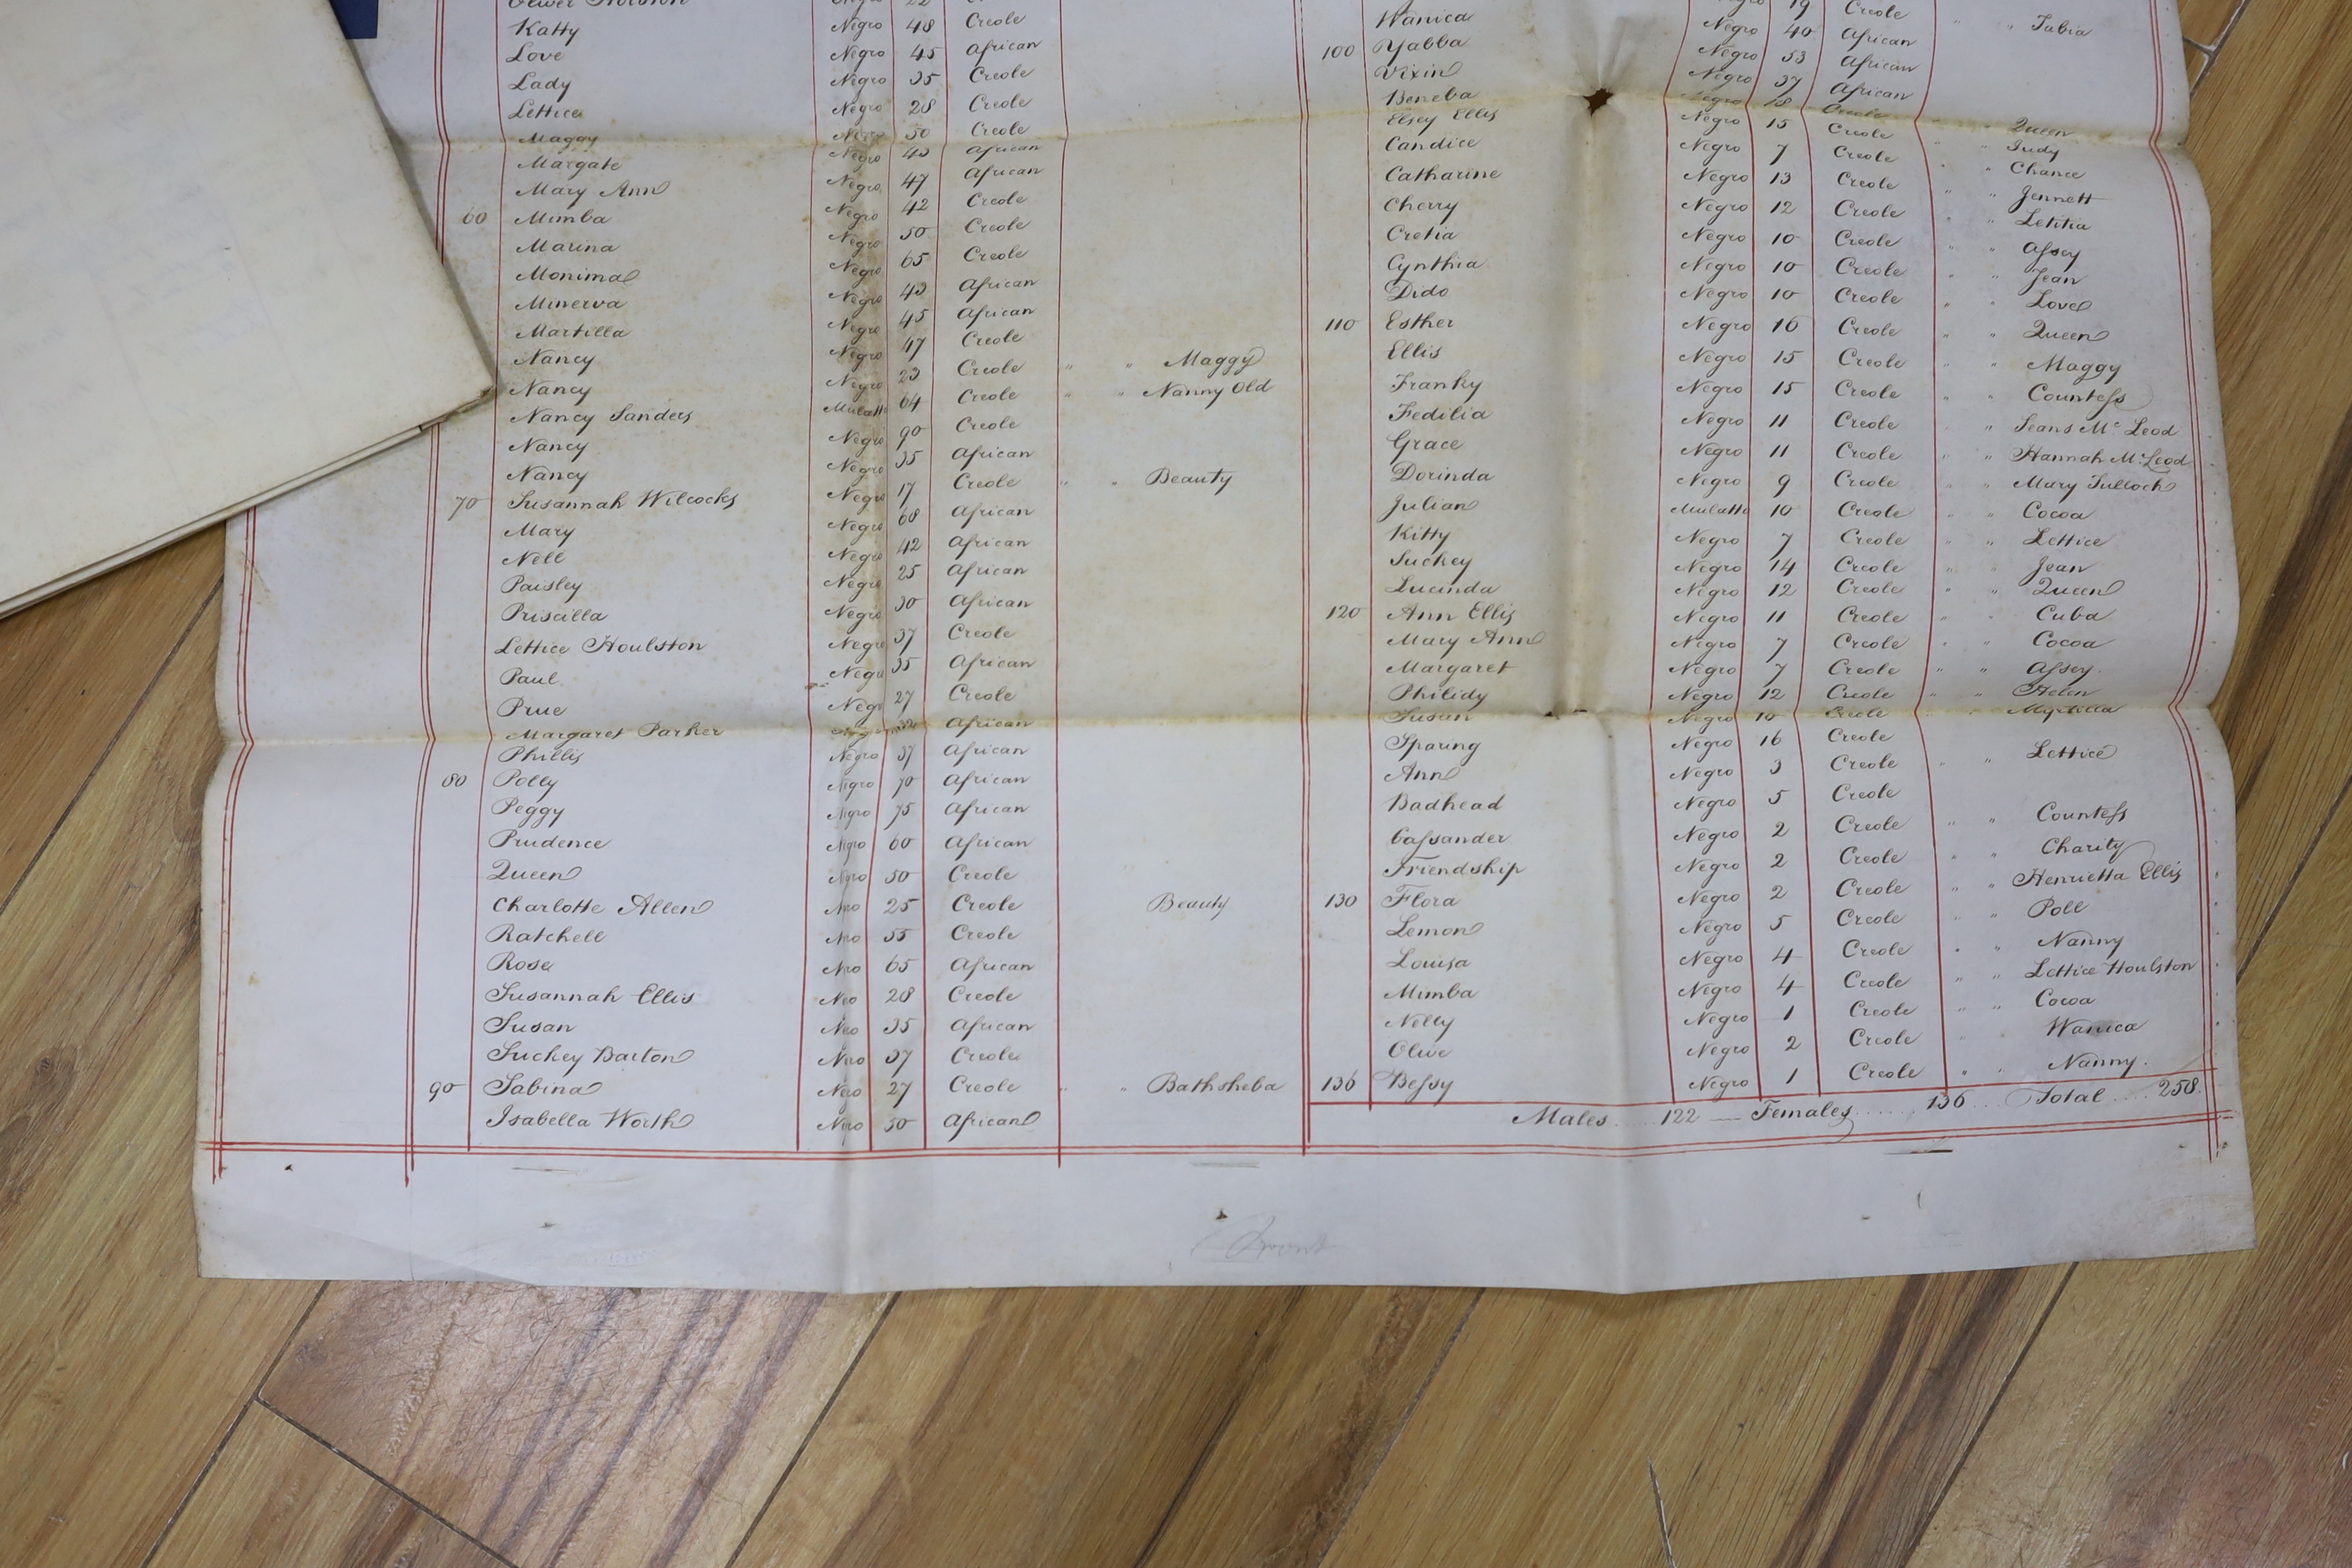 Katty Negro 48 Creole
Love Negro 45 African
Lady Negro 35 Creole
Lettice Negro 28 Creole
Maggy Negro 50 Creole
Margate Negro 43 African
Mary Ann Negro 47 African
60 Mimba Negro 42 Creole
Marina Negro 50 Creole
Monimal Negro 65 Creole
Minerva Negro 43 African
Martilla Negro 45 African
Nancy Negro 47 Creole
Nancy Negro 23 Creole " " Maggy
Nancy Sanders Mulatto 64 Creole " " Nanny Old
Nancy Negro 90 Creole
Nancy Negro 35 African
70 Susannah Wilcocks Negro 17 Creole " " Beauty
Mary Negro 68 African
Nell Negro 42 African
Paisley Negro 25 African
Priscilla Negro 30 African
Lettice Houlston Negro 37 Creole
Paul Negro 35 African
Prue Negro 27 Creole
Margaret Parker Negro African
Phillis Negro 37 African
80 Polly Negro 70 African
Peggy Negro 75 African
Prudence Negro 60 African
Queen Negro 50 Creole
Charlotte Allen Negro 25 Creole Beauty
Ratchell Negro 55 Creole
Rose Negro 65 African
Susannah Ellis Negro 28 Creole
Susan Negro 35 African
Suckey Barton Negro 37 Creole
90 Sabina Negro 27 Creole " " Bathsheba
Isabella Worth Negro 50 African
Negro 19 Creole " " Tabia
Wanica Negro 40 African
100 Yabba Negro 53 African
Vixin Negro 37 African
Beneba Negro 18 Creole " " Queen
Elsey Ellis Negro 15 Creole " " Judy
Candice Negro 7 Creole " " Chance
Catharine Negro 13 Creole " " Jennett
Cherry Negro 12 Creole " " Letitia
Cretia Negro 10 Creole " " Assey
Cynthia Negro 10 Creole " " Jean
Dido Negro 10 Creole " " Love
110 Esther Negro 16 Creole " " Queen
Ellis Negro 15 Creole " " Maggy
Franky Negro 15 Creole " " Countess
Fedilia Negro 11 Creole " Jeans Mc Leod
Grace Negro 11 Creole " " Hannah Mc Leod
Dorinda Negro 9 Creole " " Mary Tulloch
Julian Mulatto 10 Creole " " Cocoa
Kitty Negro 7 Creole " " Lettice
Suckey Negro 14 Creole " " Jean
Lucinda Negro 12 Creole " " Queen
120 Ann Ellis Negro 11 Creole " " Cuba
Mary Ann Negro 7 Creole " " Cocoa
Margaret Negro 7 Creole " " Assey.
Philidy Negro 12 Creole " " Helen
Susan Negro 10 Creole " " Myrtilla
Sparing Negro 16 Creole
Ann Negro 3 Creole " " Lettice
Badhead Negro 5 Creole
Cassander Negro 2 Creole " " Countess
Friendship Negro 2 Creole " " Charity
130 Flora Negro 2 Creole " " Henrietta Ellis
Lemon Negro 5 Creole " " Poll
Louisa Negro 4 Creole " " Nanny
Mimba Negro 4 Creole " " Lettice Houlston
Nelly Negro 1 Creole " " Cocoa
Olive Negro 2 Creole " Wanica
136 Bessy Negro 1 Creole " " Nanny.
Males ..... 122 — Females ...... 136 ... Total .... 258.